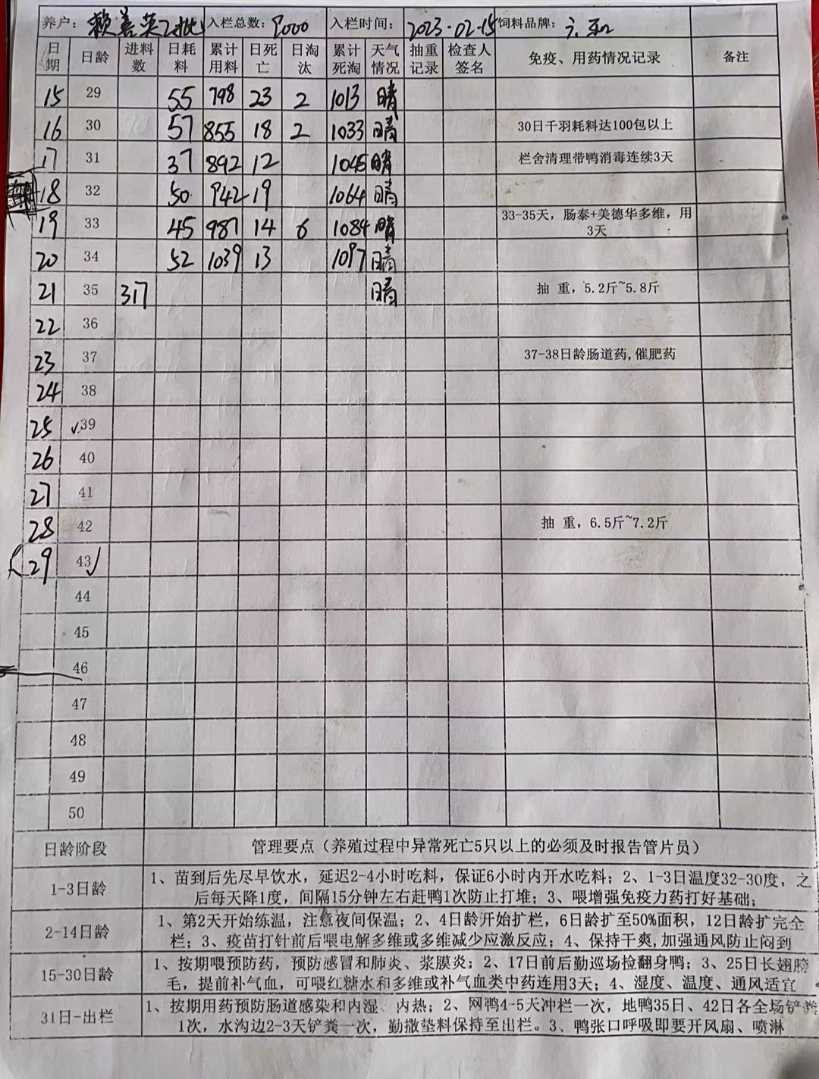 养户： 赖善英2批 入栏总数： 9000 入栏时间： 2023.02.15 饲料品牌：
日期 日龄 进料数 日耗料 累计用料 日死亡 日淘汰 累计死淘 天气情况 抽重记录 检查人签名 免疫、用药情况记录 备注
15 29 55 798 23 2 1013 晴
16 30 57 855 18 2 1033 晴 30日千羽耗料达100包以上
17 31 37 892 12 1045 晴 栏舍清理带鸭消毒连续3天
18 32 50 942 19 1064 晴
19 33 45 987 14 6 1084 晴 33-35天，肠泰+美德华多维，用3天
20 34 52 1039 13 1097 晴
21 35 317 晴 抽 重，5.2斤~5.8斤
22 36
23 37 37-38日龄肠道药,催肥药
24 38
25 39
26 40
27 41
28 42 抽 重，6.5斤~7.2斤
29 43
44
45
46
47
48
49
50
日龄阶段 管理要点（养殖过程中异常死亡5只以上的必须及时报告管片员）
1-3日龄 1、苗到后先尽早饮水，延迟2-4小时吃料，保证6小时内开水吃料；2、1-3日温度32-30度，之
后每天降1度，间隔15分钟左右赶鸭1次防止打堆；3、喂增强免疫力药打好基础；
2-14日龄 1、第2天开始练温，注意夜间保温；2、4日龄开始扩栏，6日龄扩至50%面积，12日龄扩完全
栏；3、疫苗打针前后喂电解多维或多维减少应激反应；4、保持干爽,加强通风防止闷到
15-30日龄 1、按期喂预防药，预防感冒和肺炎、浆膜炎；2、17日前后勤巡场捡翻身鸭；3、25日长翅膀
毛，提前补气血，可喂红糖水和多维或补气血类中药连用3天；4、湿度、温度、通风适宜
31日-出栏 1、按期用药预防肠道感染和内湿、内热；2、网鸭4-5天冲栏一次，地鸭35日、42日各全场铲粪
1次，水沟边2-3天铲粪一次，勤撒垫料保持至出栏。3、鸭张口呼吸即要开风扇、喷淋